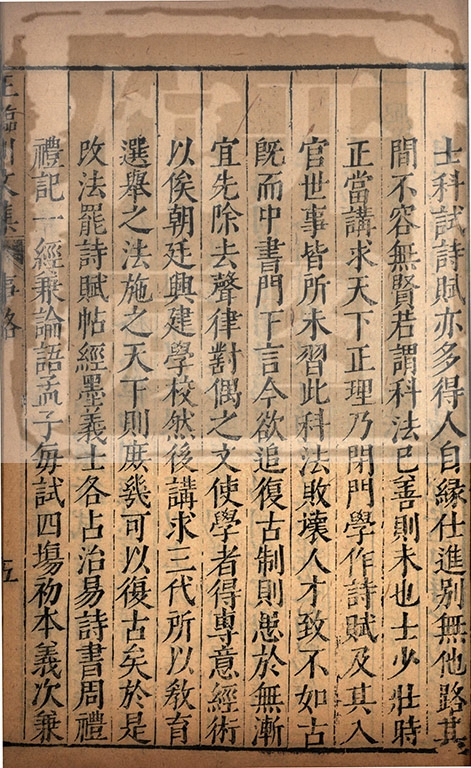 士科試詩賦亦多得人自緣仕進別無他路其
間不容無賢若謂科法巳善則未也士少壯時
正當講求天下正理乃閉門學作詩賦及其入
官世事皆所未習此科法敗壞人才致不如古
旣而中書門下言今欲追復古制則患於無漸
宜先除去聲律對偶之文使學者得專意經術
以俟朝廷興建學校然後講求三代所以教育
選舉之法施之天下則庶幾可以復古矣於是
改法罷詩賦帖經墨義士各占治易詩書周禮
禮記一經兼論語孟子每試四塲初本義次兼
王臨川文集 事略 五